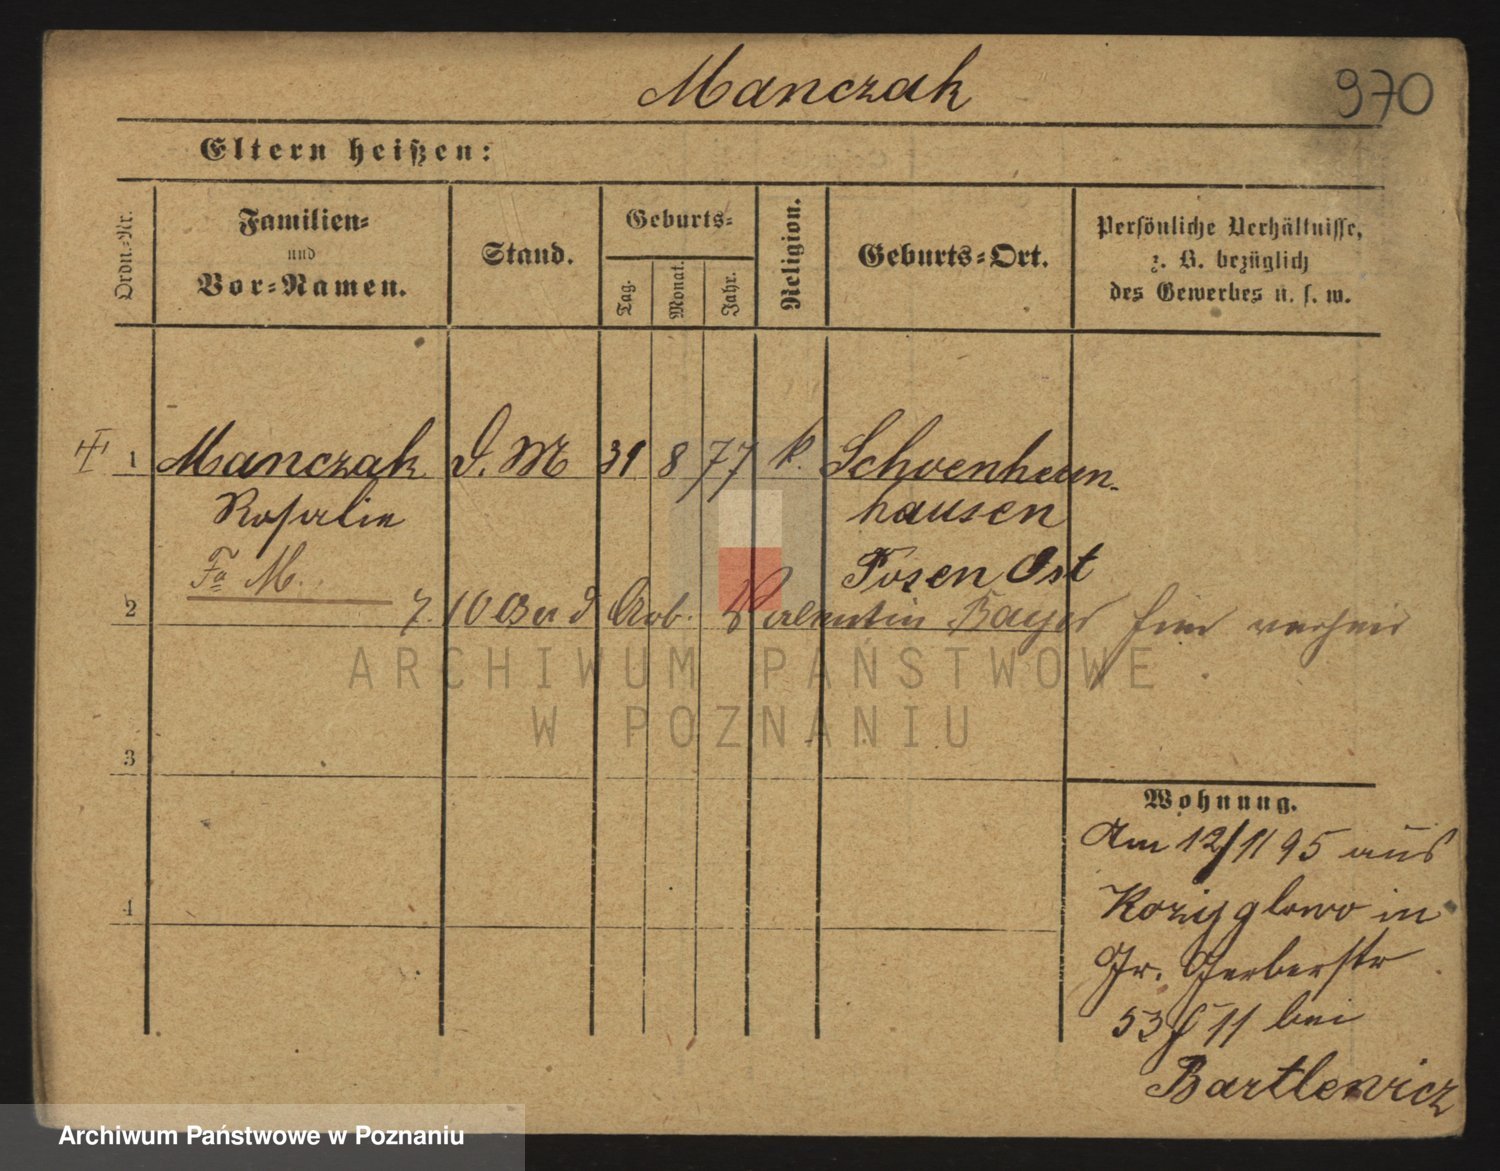 Manczak
970
Eltern heißen:
Ordn.=Nr.
Familien=
und
Vor=Namen.
Stand.
Geburts=
Tag.
Monat.
Jahr.
Religion.
Geburts=Ort.
Persönliche Verhältnisse,
z. B. bezüglich
des Gewerbes u. s. w.
1 Manczak D. M 31 8 77 k. Schoenherrn-
Rosalie hausen
Fa M. Posen Ost
2 7. 10 Arb. Valentin Bayer hier verheir
3
Wohnung.
Am 12/11 95 aus
4 Kozigglowo in
Gr. Gerberstr
53 11 bei
Bartlewicz
ARCHIWUM PAŃSTWOWE
W POZNANIU
Archiwum Państwowe w Poznaniu